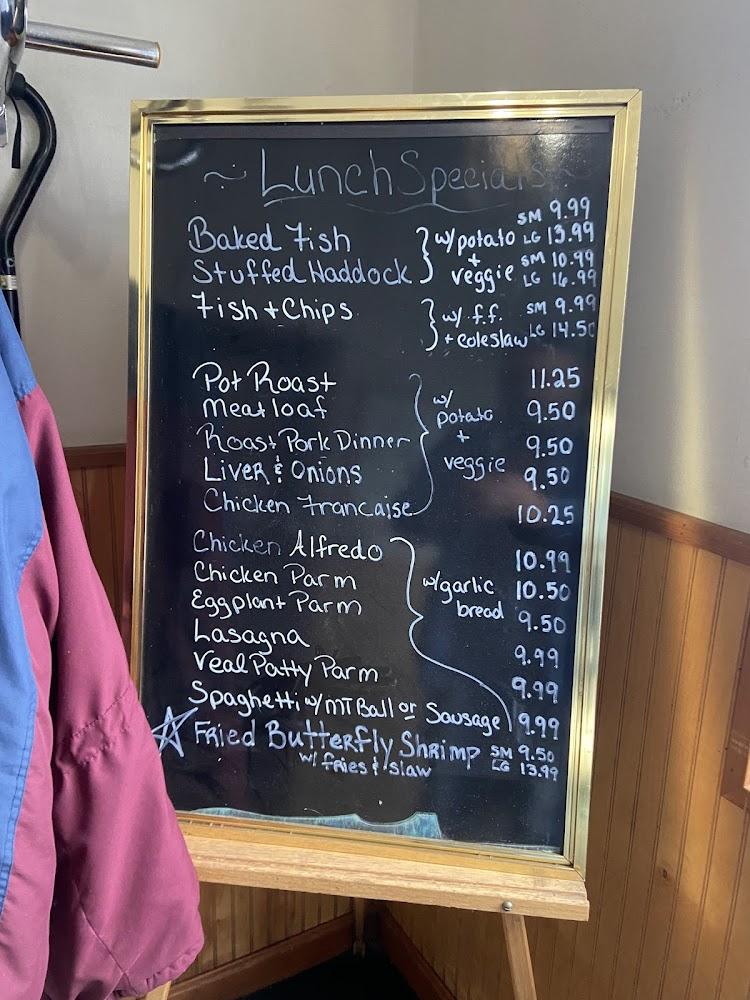 ~ Lunch Specials ~
Baked Fish } w/ potato + veggie SM 9.99 LG 13.99
Stuffed Haddock SM 10.99 LG 16.99
Fish + Chips } w/ f.f. + coleslaw SM 9.99 LG 14.50
Pot Roast 11.25
Meatloaf w/ potato + veggie 9.50
Roast Pork Dinner 9.50
Liver & Onions 9.50
Chicken Francaise 10.25
Chicken Alfredo 10.99
Chicken Parm w/ garlic bread 10.50
Eggplant Parm 9.50
Lasagna 9.99
Veal Patty Parm 9.99
Spaghetti w/ MT Ball or Sausage 9.99
☆ Fried Butterfly Shrimp SM 9.50
w/ fries & slaw LG 13.99